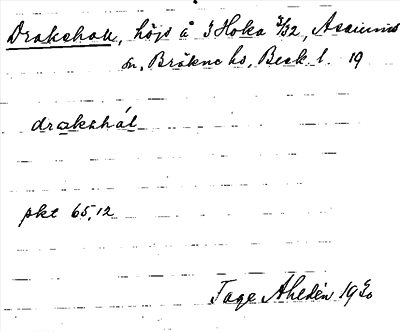 Drakehall, höjs å 3 Hoka 3/32, Asarums
sn, Bräkne hs, Blek. l. 19
drakshál
pkt 65,12
Tage Ahldén 1930